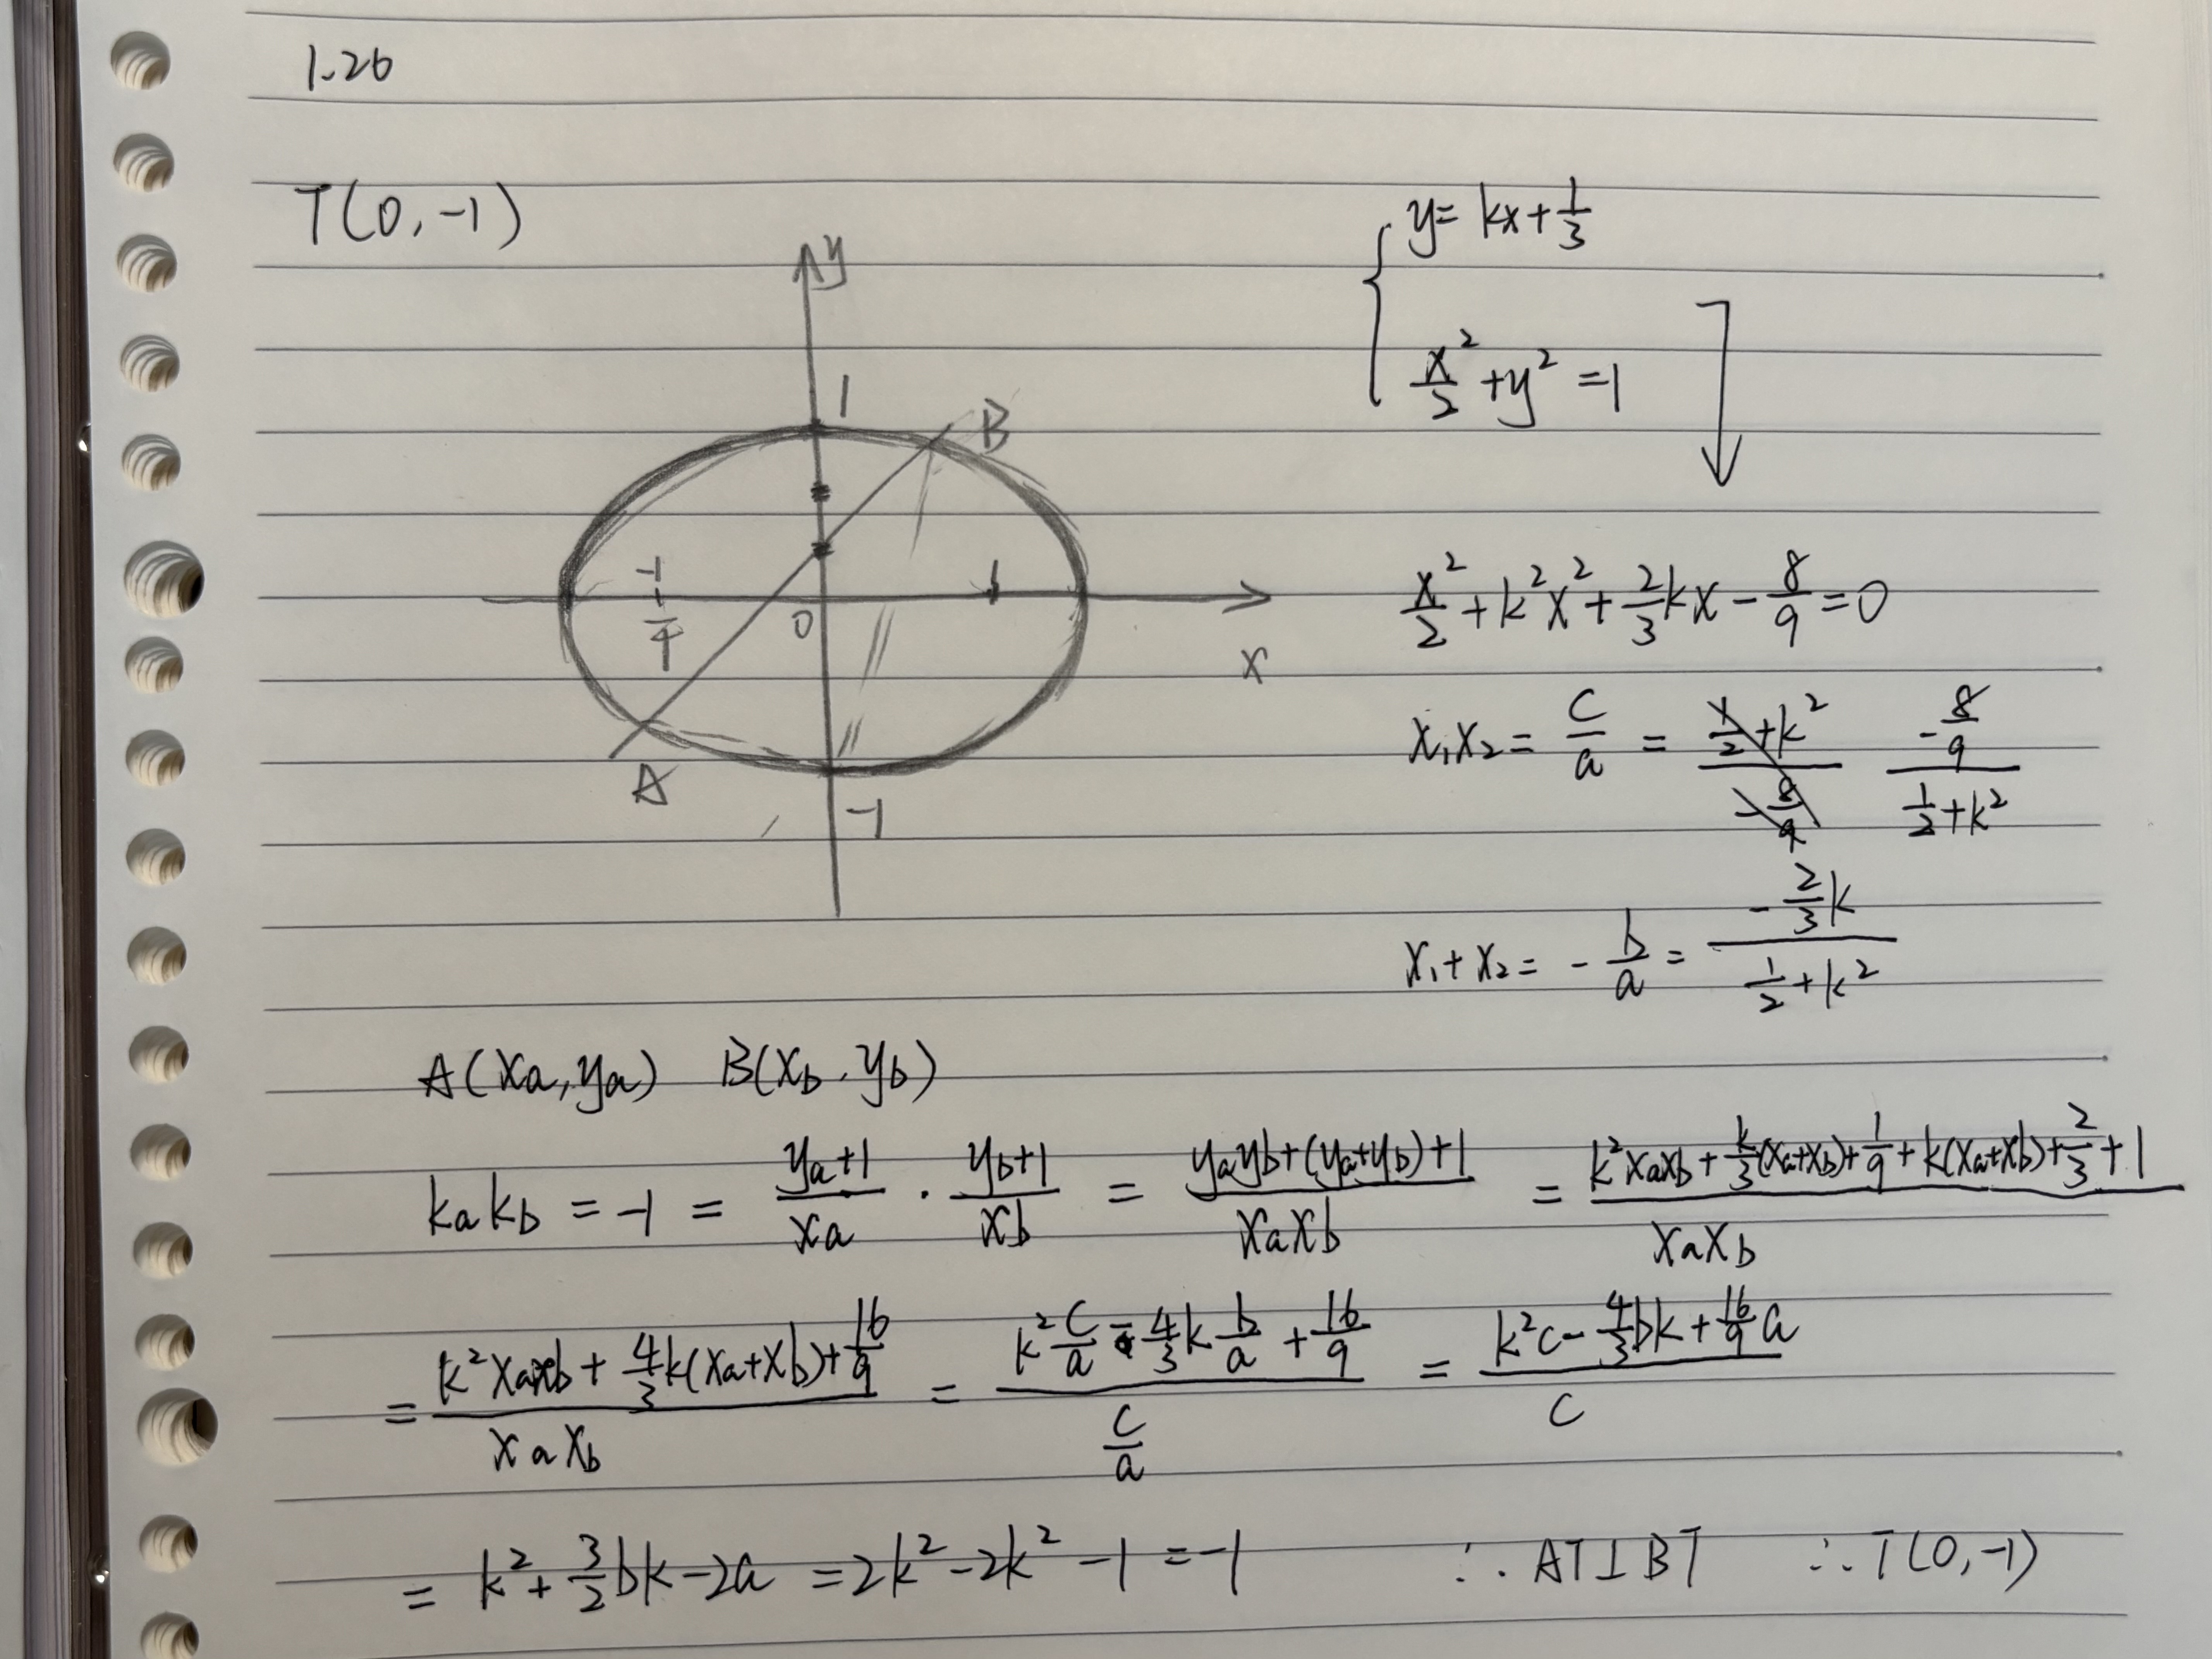 1.26
T(0,-1)
y
1
B
-1
0
1
x
A
-1
y=kx+1/3
x²/2+y²=1
x²/2+k²x²+2/3kx-8/9=0
x₁x₂=c/a= (-8/9)/(1/2+k²)
x₁+x₂=-b/a=(-2/3k)/(1/2+k²)
A(xa,ya) B(xb.yb)
kakb=-1=(ya+1)/xa·(yb+1)/xb=(yayb+(ya+yb)+1)/(xaxb)=(k²xaxb+k/3(xa+xb)+1/9+k(xa+xb)+2/3+1)/(xaxb)
=(k²xaxb+4/3k(xa+xb)+16/9)/(xaxb)=(k²c/a-4/3kb/a+16/9)/(c/a)=(k²c-4/3bk+16/9a)/c
=k²+3/2bk-2a=2k²-2k²-1=-1 ∴AT⊥BT ∴T(0,-1)